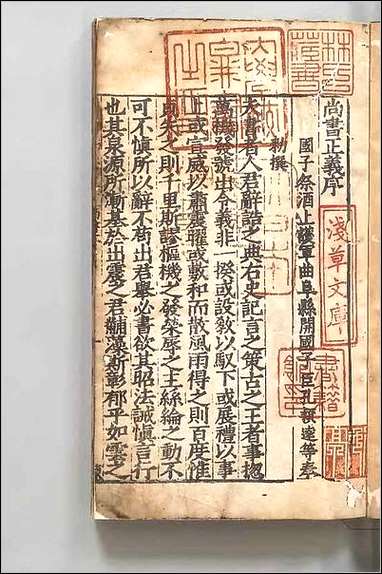 林氏藏書
尚書正義序
淺草文庫
國子祭酒上護軍曲阜縣開國子臣孔穎達等奉
勑撰
夫書者人君辭誥之典右史記言之策古之王者事揔
萬機發號出令義非一揆或設教以馭下或展禮以事
上或宣威以肅震曜或敷和而散風雨得之則百度惟
貞失之則千里斯謬樞機之發榮辱之主絲綸之動不
可不慎所以辭不苟出君舉必書欲其昭法誡慎言行
也其泉源所漸基於出震之君黼藻斯彰郁乎如雲之
書籍館印